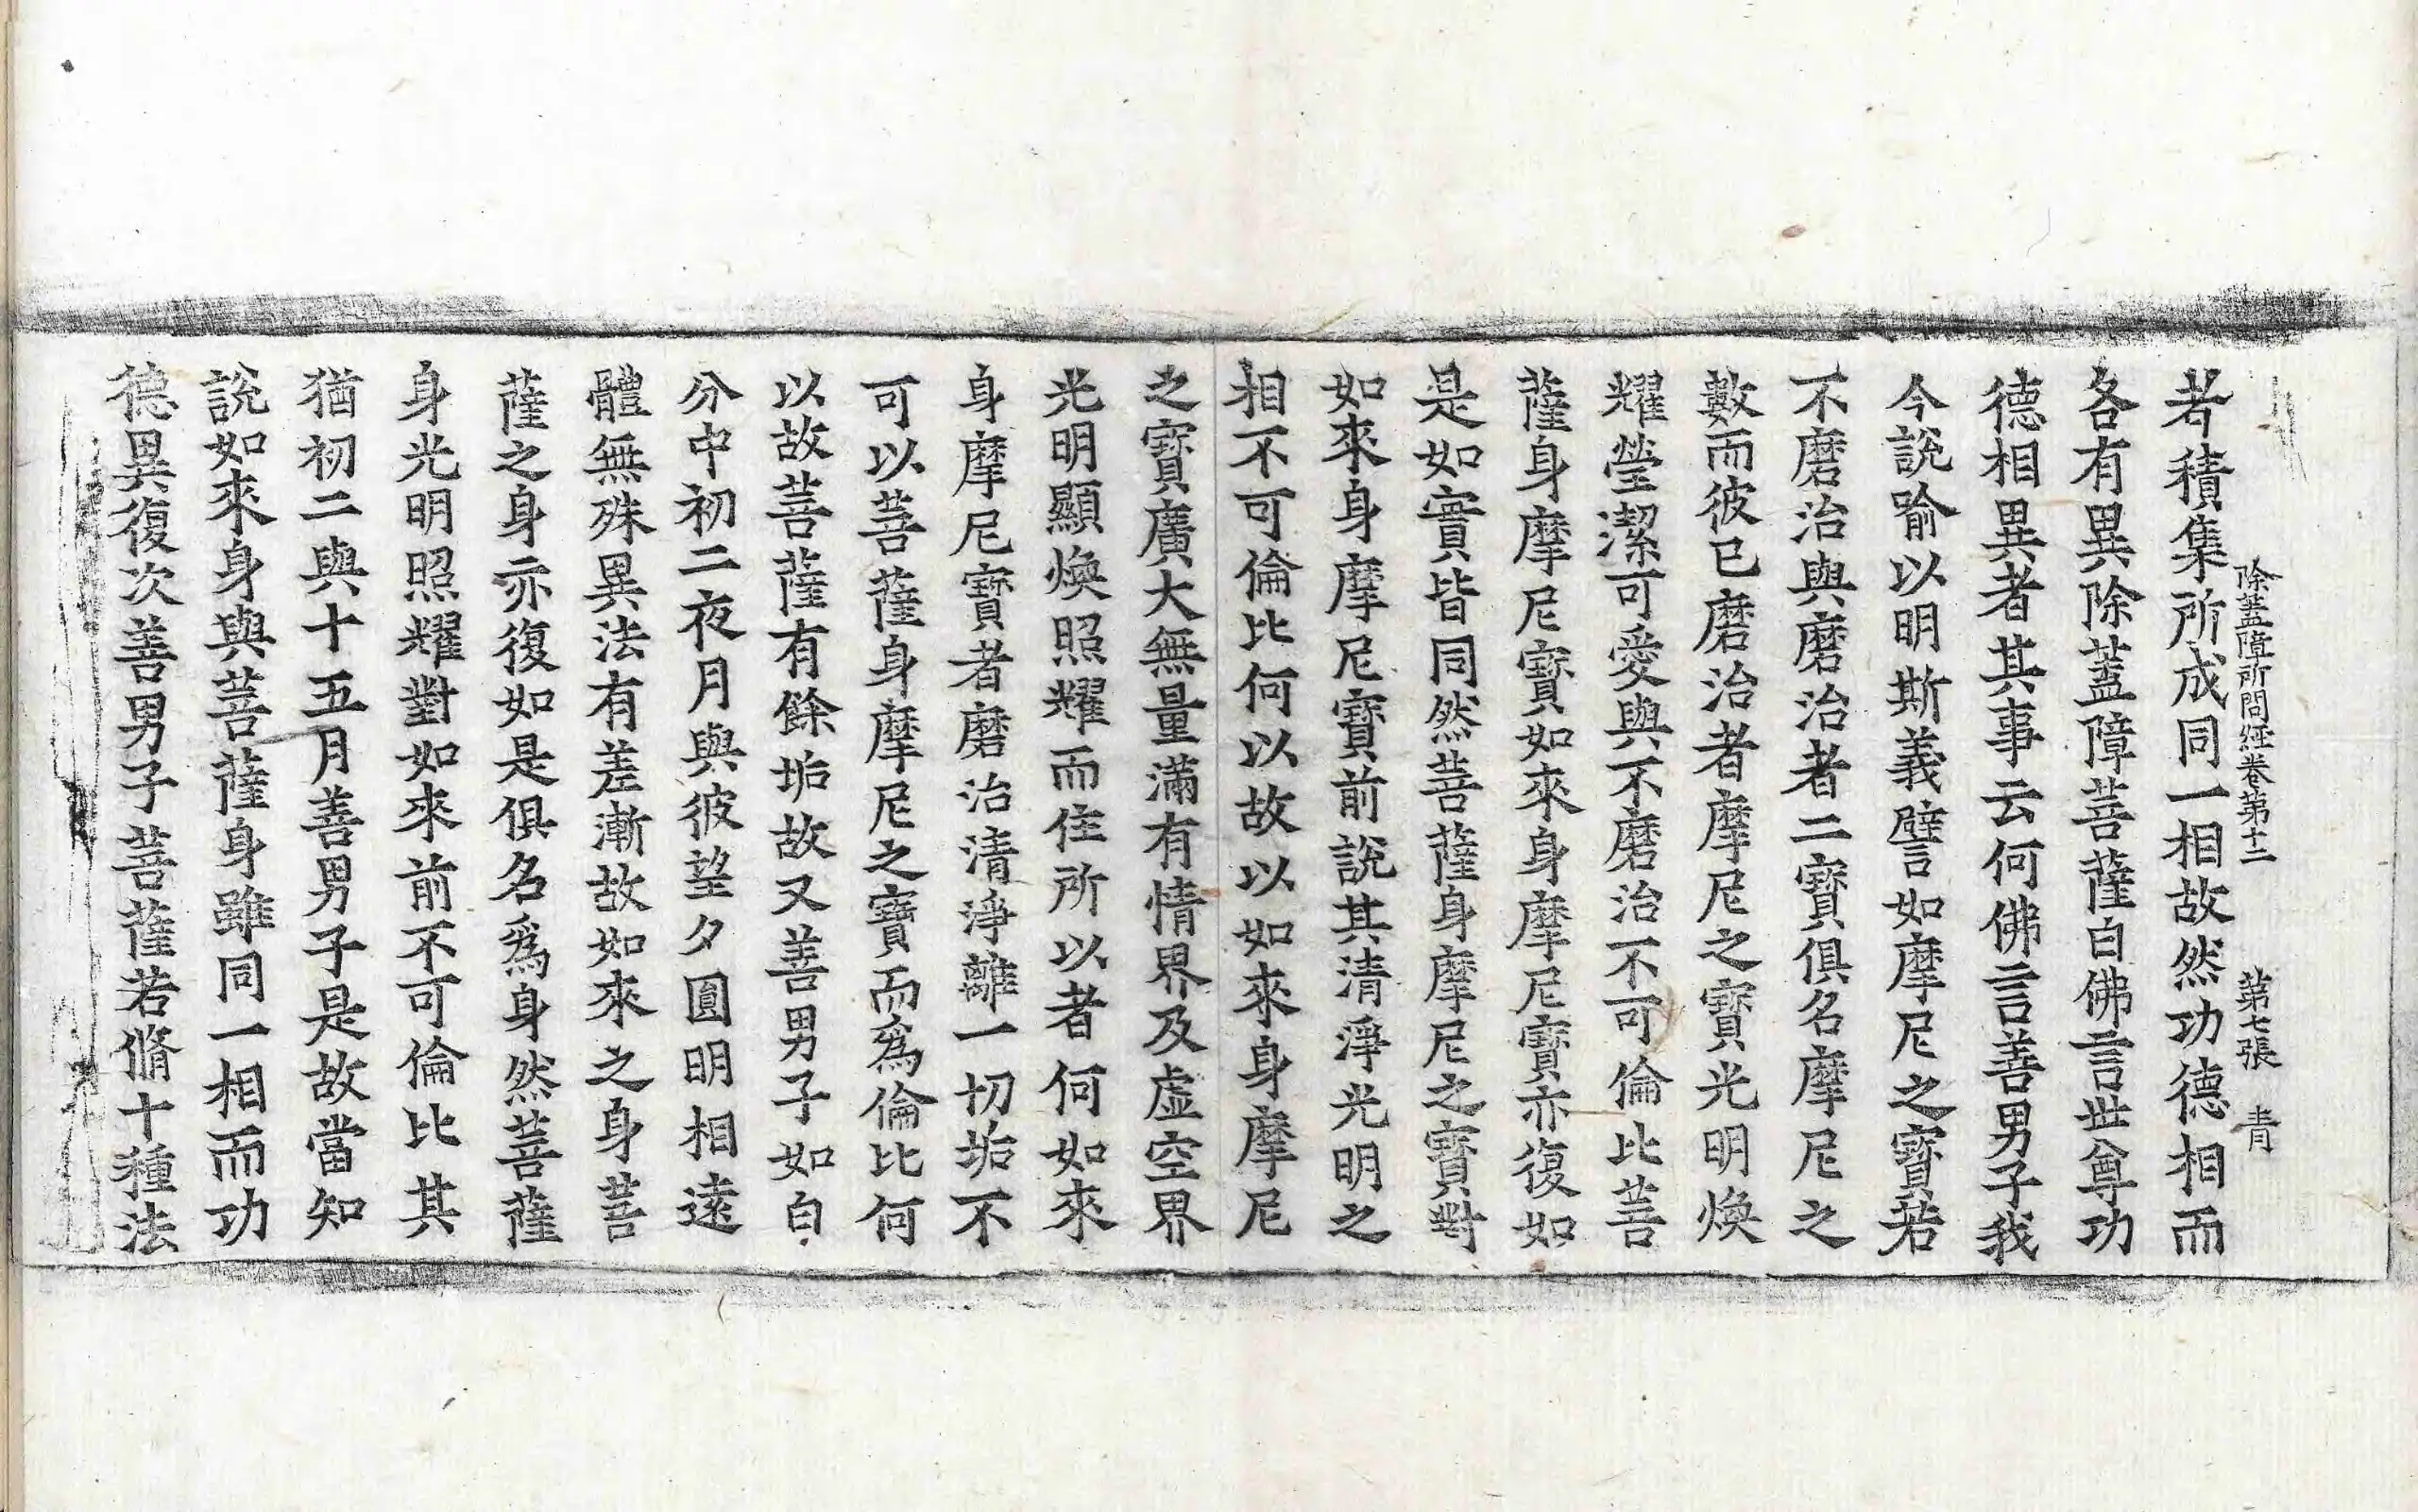 除蓋障所問経卷第十二　第七張　青
者積集所成同一相故然功德相而
各有異除蓋障菩薩白佛言世尊功
德相異者其事云何佛言善男子我
今說喻以明斯義譬如摩尼之寶若
不磨治與磨治者二寶俱名摩尼之
數而彼已磨治者摩尼之寶光明煥
耀瑩潔可愛與不磨治不可倫比菩
薩身摩尼寶如來身摩尼寶亦復如
是如實皆同然菩薩身摩尼之寶對
如來身摩尼寶前說其清淨光明之
相不可倫比何以故以如來身摩尼
之寶廣大無量滿有情界及虛空界
光明顯煥照耀而住所以者何如來
身摩尼寶者磨治清淨離一切垢不
可以菩薩身摩尼之寶而爲倫比何
以故菩薩有餘垢故又善男子如白
分中初二夜月與彼望夕圓明相遠
體無殊異法有差漸故如來之身菩
薩之身亦復如是俱名爲身然菩薩
身光明照耀對如來前不可倫比其
猶初二與十五月善男子是故當知
說如來身與菩薩身雖同一相而功
德異復次善男子菩薩若脩十種法